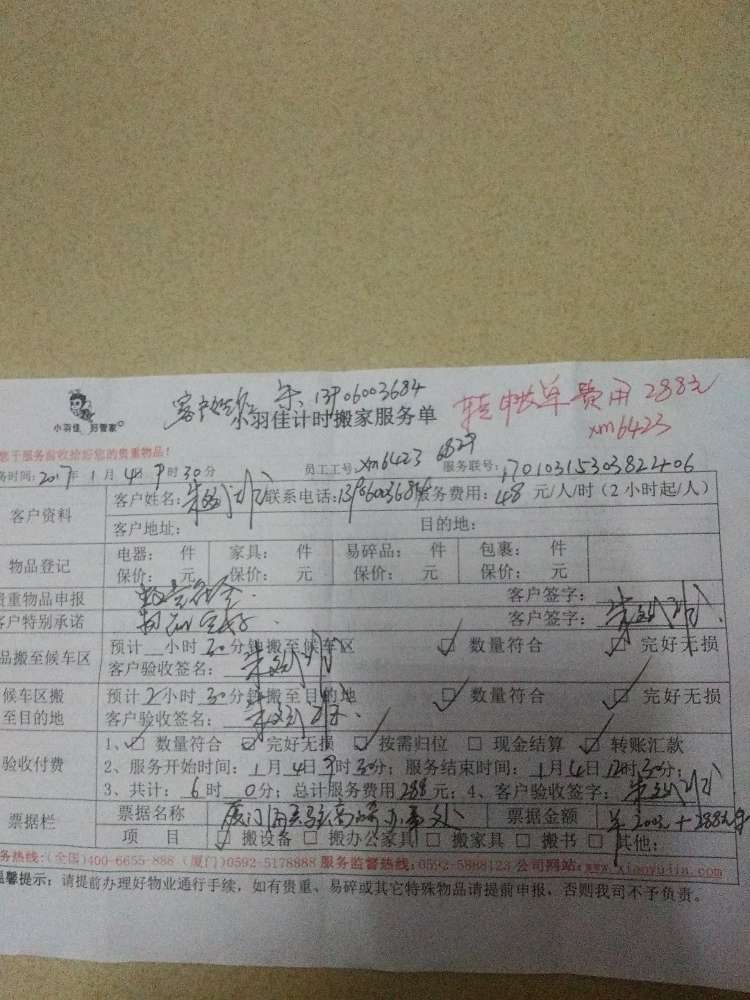 小羽佳 好管家
客户姓名 朱 13906003684
小羽佳计时搬家服务单
转账单费用288元
xm6423
您于服务前收拾好您的贵重物品!
务时间:2017年1月4日9时30分 员工工号:xm6423 6829 服务联号:17010315303822406
客户资料
客户姓名:朱 联系电话:13906003684 服务费用:48元/人/时(2小时起/人)
客户地址: 目的地:
物品登记
电器: 件 家具: 件 易碎品: 件 包裹: 件
保价: 元 保价: 元 保价: 元 保价: 元
贵重物品申报 客户签字:
客户特别承诺 客户签字:朱
品搬至候车区
预计 小时30分钟搬至候车区 数量符合 完好无损
客户验收签名:朱
候车区搬至目的地
预计2小时30分钟搬至目的地 数量符合 完好无损
客户验收签名:朱
验收付费
1、数量符合 完好无损 按需归位 现金结算 转账汇款
2、服务开始时间:1月4日9时30分;服务结束时间:1月4日12时30分;
3、共计:6时0分;总计服务费用288元;4、客户验收签字:朱
票据栏
票据名称 厦门 办事处 票据金额 200元+288元
项 目 搬设备 搬办公家具 搬家具 搬书 其他:
务热线:(全国)400-6655-888 (厦门)0592-5178888 服务监督热线:0592-5888123 公司网站:www.xiaoyujia.com
温馨提示:请提前办理好物业通行手续,如有贵重、易碎或其它特殊物品请提前申报,否则我司不予负责。